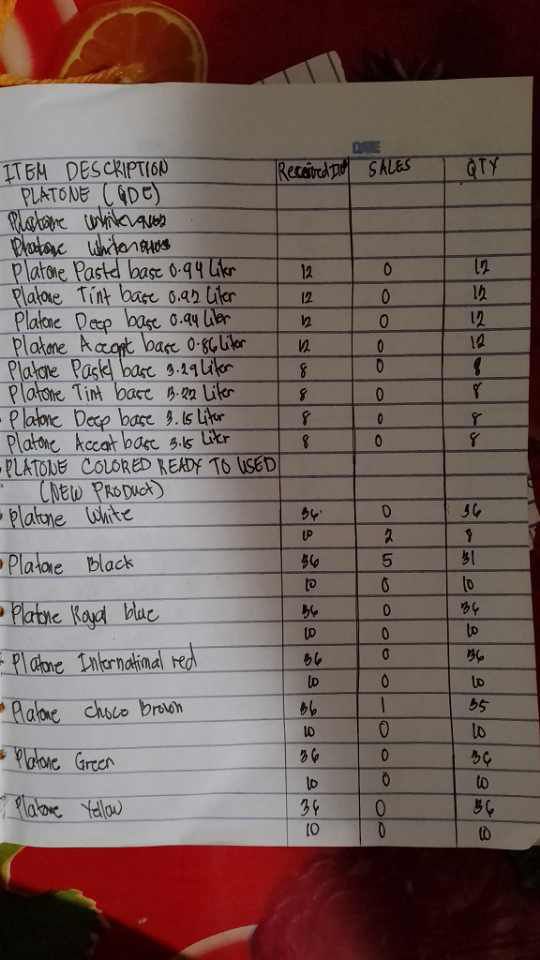 DATE
ITEM DESCRIPTION SALES QTY
PLATONE (QDE)
Platone
Platone
Platone Pastel base 0.94 Liter 12 0 12
Platone Tint base 0.92 Liter 12 0 12
Platone Deep base 0.94 Liter 12 0 12
Platone Accent base 0.86 Liter 12 0 12
Platone Pastel base 3.29 Liter 8 0 8
Platone Tint base 3.22 Liter 8 0 8
Platone Deep base 3.15 Liter 8 0 8
Platone Accent base 3.15 Liter 8 0 8
PLATONE COLORED READY TO USED
(NEW PRODUCT)
Platone White 36 0 36
10 2 8
Platone Black 36 5 31
10 0 10
Platone Royal blue 36 0 36
10 0 10
Platone International red 36 0 36
10 0 10
Platone Choco Brown 36 1 35
10 0 10
Platone Green 36 0 36
10 0 10
Platone Yellow 36 0 36
10 0 10